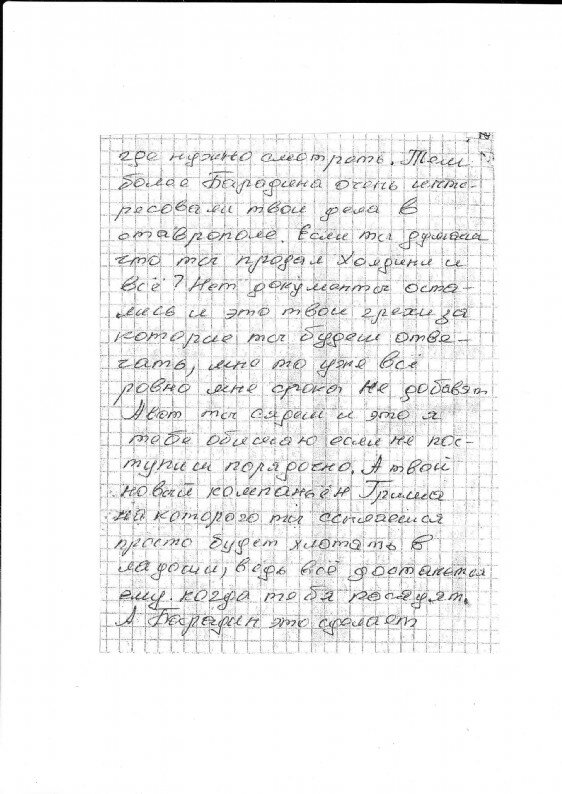 2
где нужно смотреть. Тем
более Барадина очень инте-
ресовали твои дела в
ставрополе. Если ты думаеш
что ты продал Холдинг и
всё? Нет документы оста-
лись и это твои грехи за
которые ты будеш отве-
чать, мне то уже всё
ровно мне срока не добавят
А вот ты сядеш и это я
тебе обищаю если не пос-
тупиш порядочно. А твой
новый компаньён Гриша
на которого ты ссылаешся
просто будет хлопать в
ладоши, ведь всё достанется
ему когда тебя посадят.
А Барадин это сделает